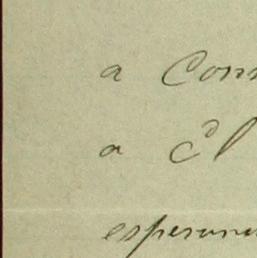 a Con
a Cl
esperan